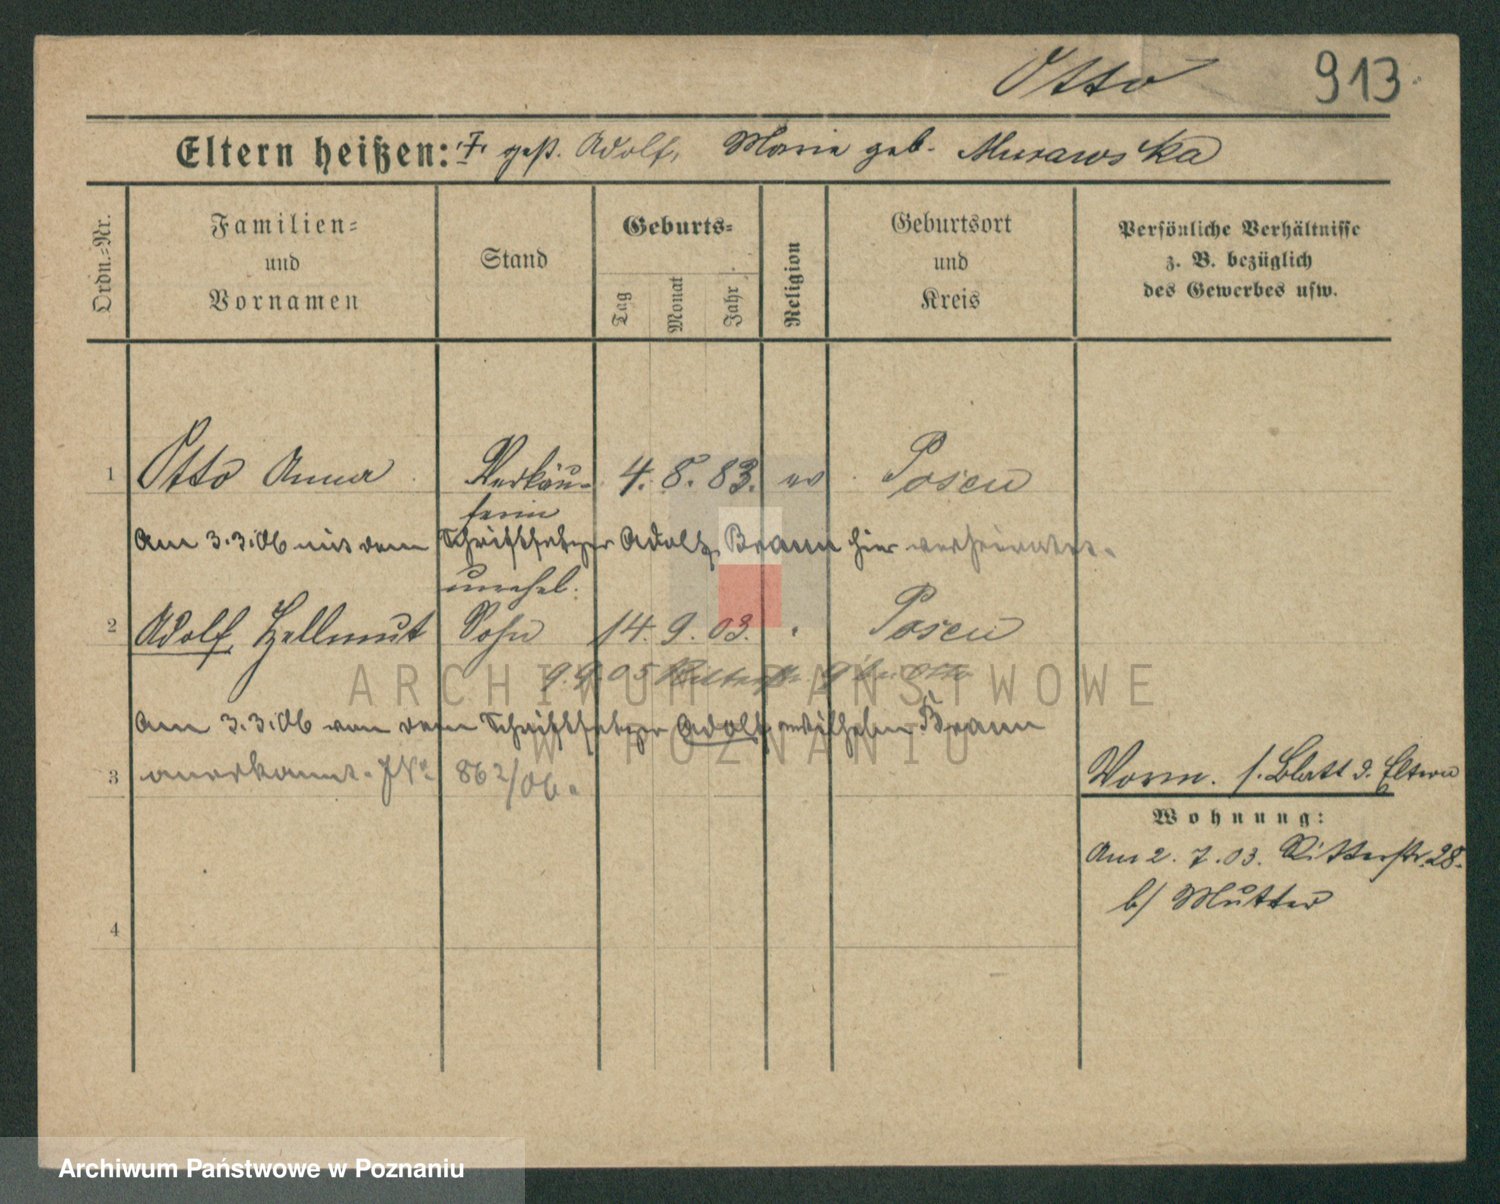 Otto 913.
Eltern heißen: "F" gest. Adolf, Marie geb. Murawska
Ordn.-Nr.
Familien- und Vornamen
Stand
Geburts-
Tag
Monat
Jahr
Religion
Geburtsort und Kreis
Persönliche Verhältnisse z. B. bezüglich des Gewerbes usw.
1 Otto Anna Verkäu- 4. 8. 83. ev Posen
ferin
Am 3.3.06 mit dem Schriftsetzer Adolf Braun hier verheiratet.
unehel.
2 Adolf, Hellmut Sohn 14. 9. 03. " Posen
9.9.05 Otto
Am 3.3.06 von dem Schriftsetzer Adolf Wilhelm Braun
3 anerkannt. JNr 862/06.
Vorm. s. Blatt d. Eltern
Wohnung:
Am 2. 7. 03. Ritterstr. 28.
b/ Mutter
4
ARCHIWUM PAŃSTWOWE
W POZNANIU
Archiwum Państwowe w Poznaniu